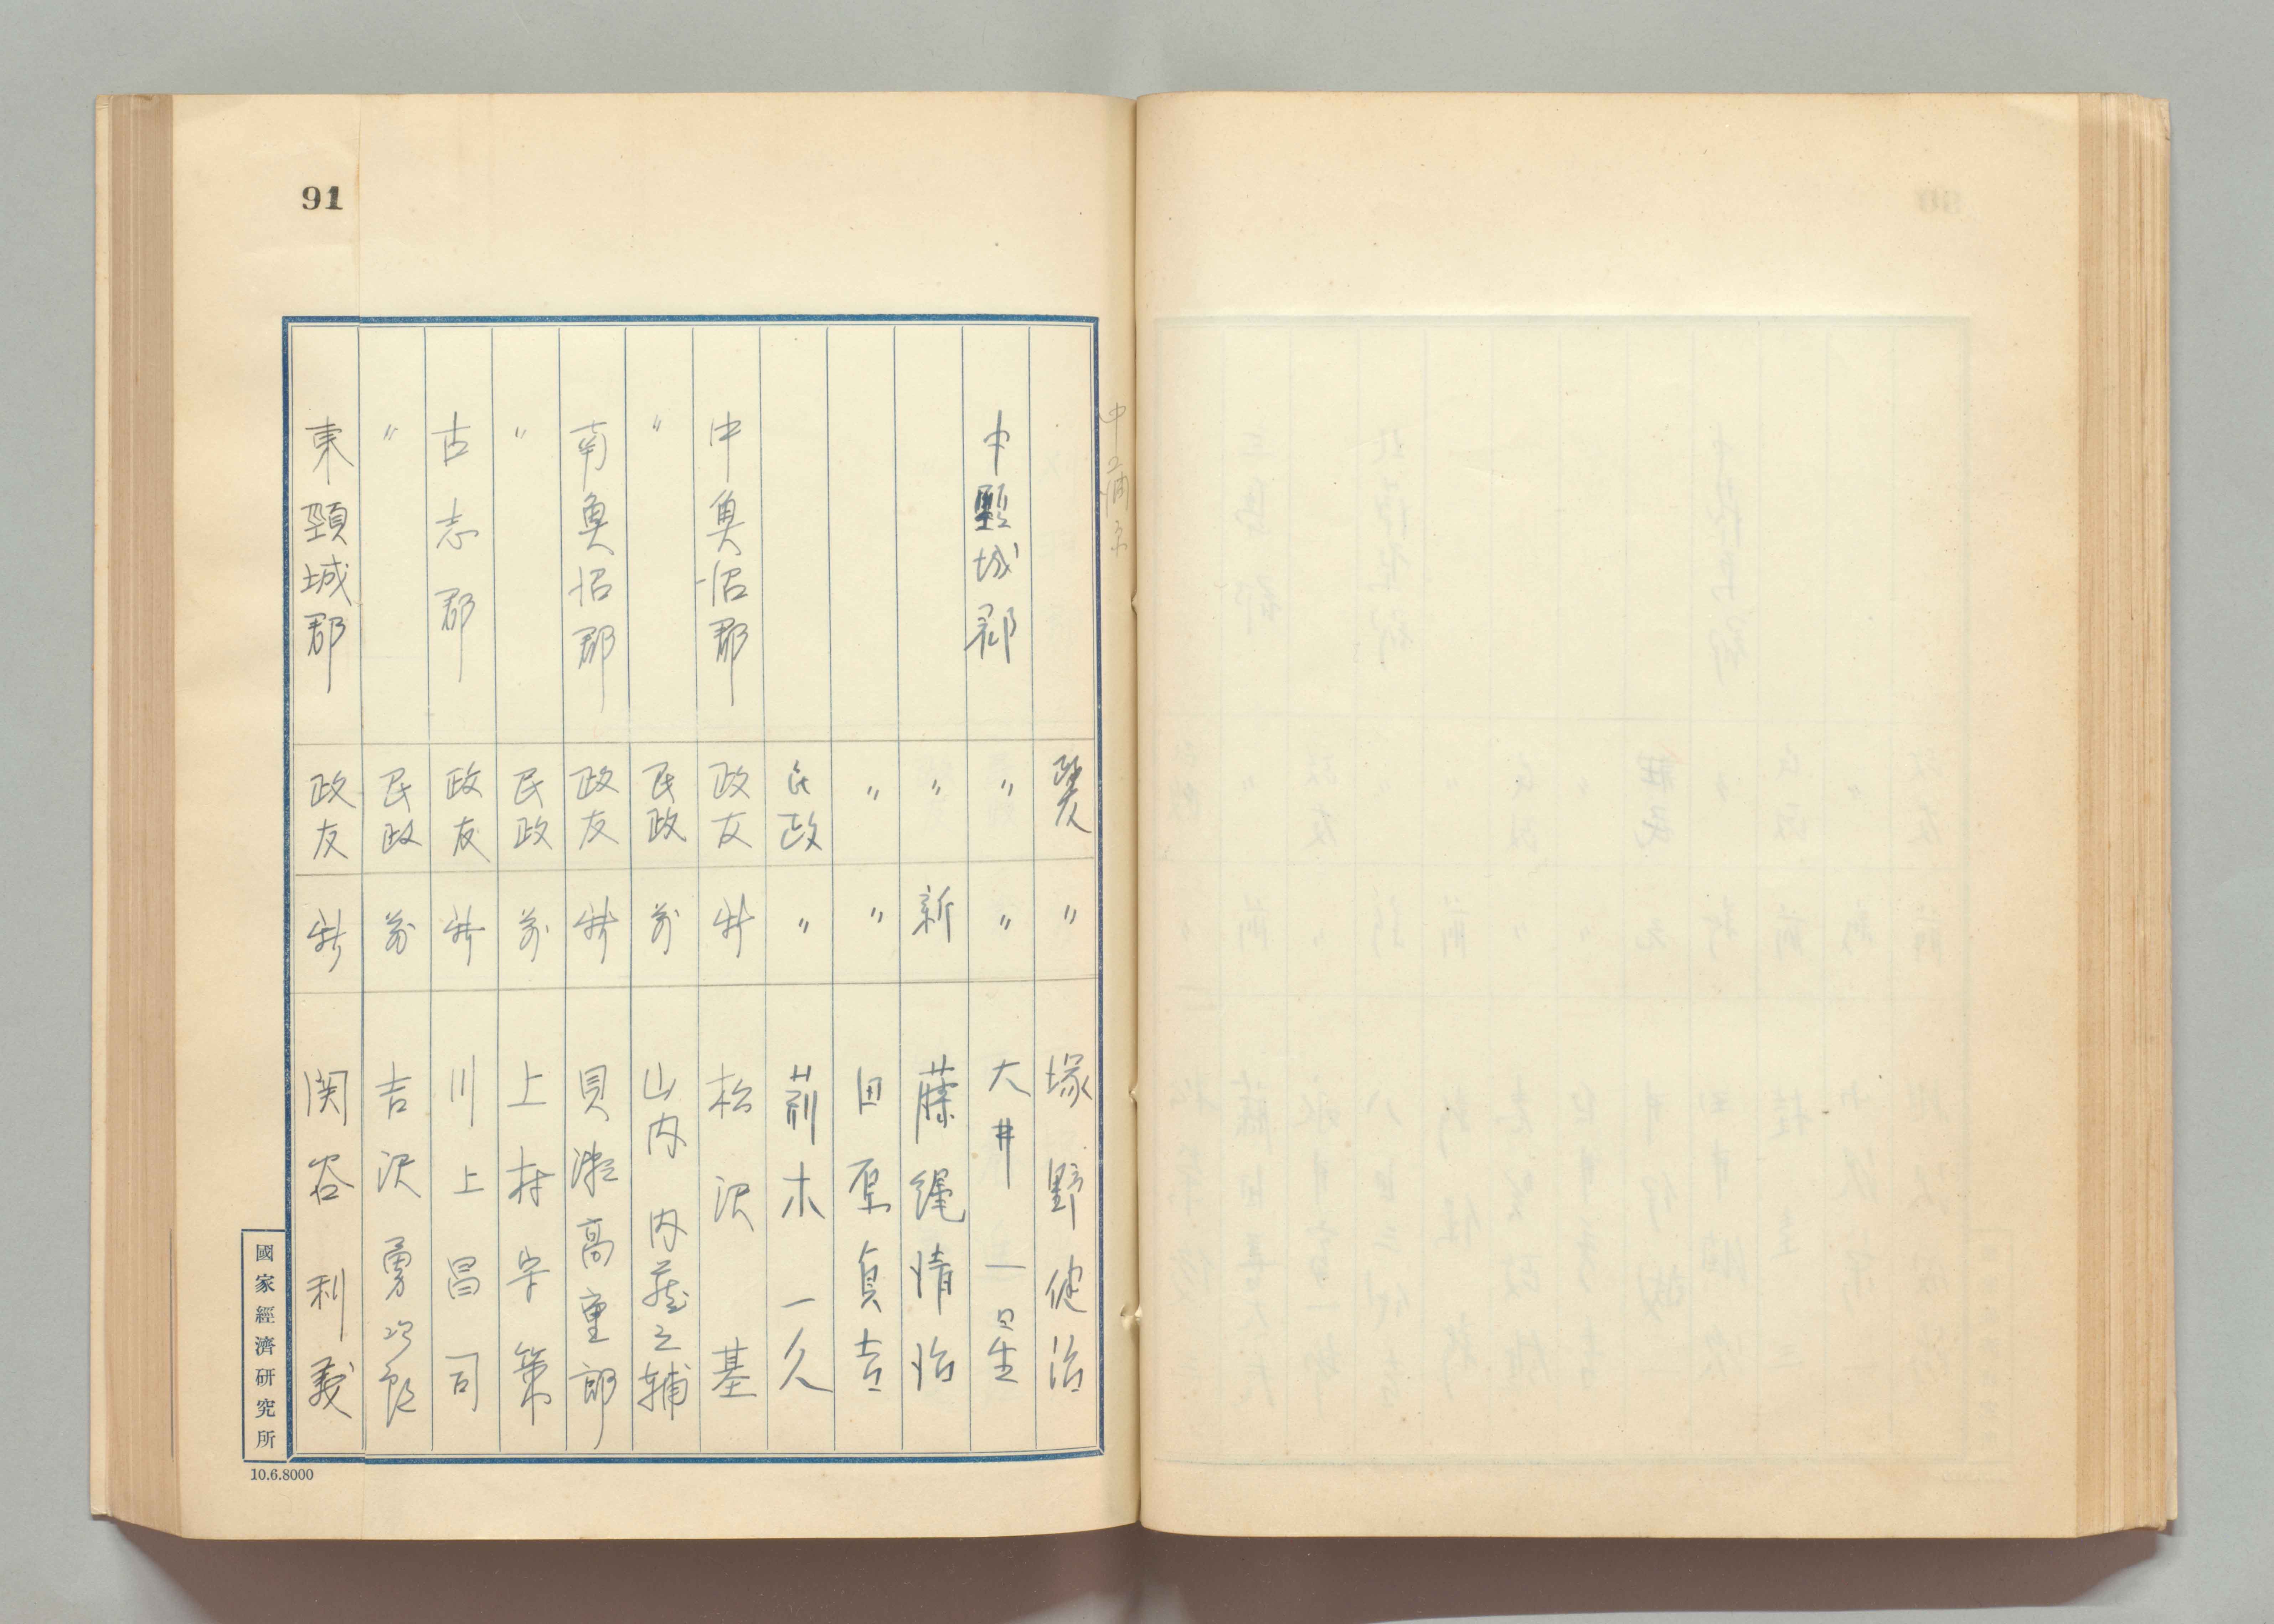 91
政友 〃 塚野健治
中頸城郡 〃 〃 大井一星
〃 新 藤縄清治
〃 〃 田原貞吉
民政 〃 荊木一久
中魚沼郡 政友 新 松沢基
〃 民政 前 山内内蔵之輔
南魚沼郡 政友 新 貝瀬高重郎
〃 民政 前 上村宇第
古志郡 政友 新 川上昌司
〃 民政 前 吉沢勇次郎
東頸城郡 政友 新 関谷利義
國家經濟研究所
10.6.8000